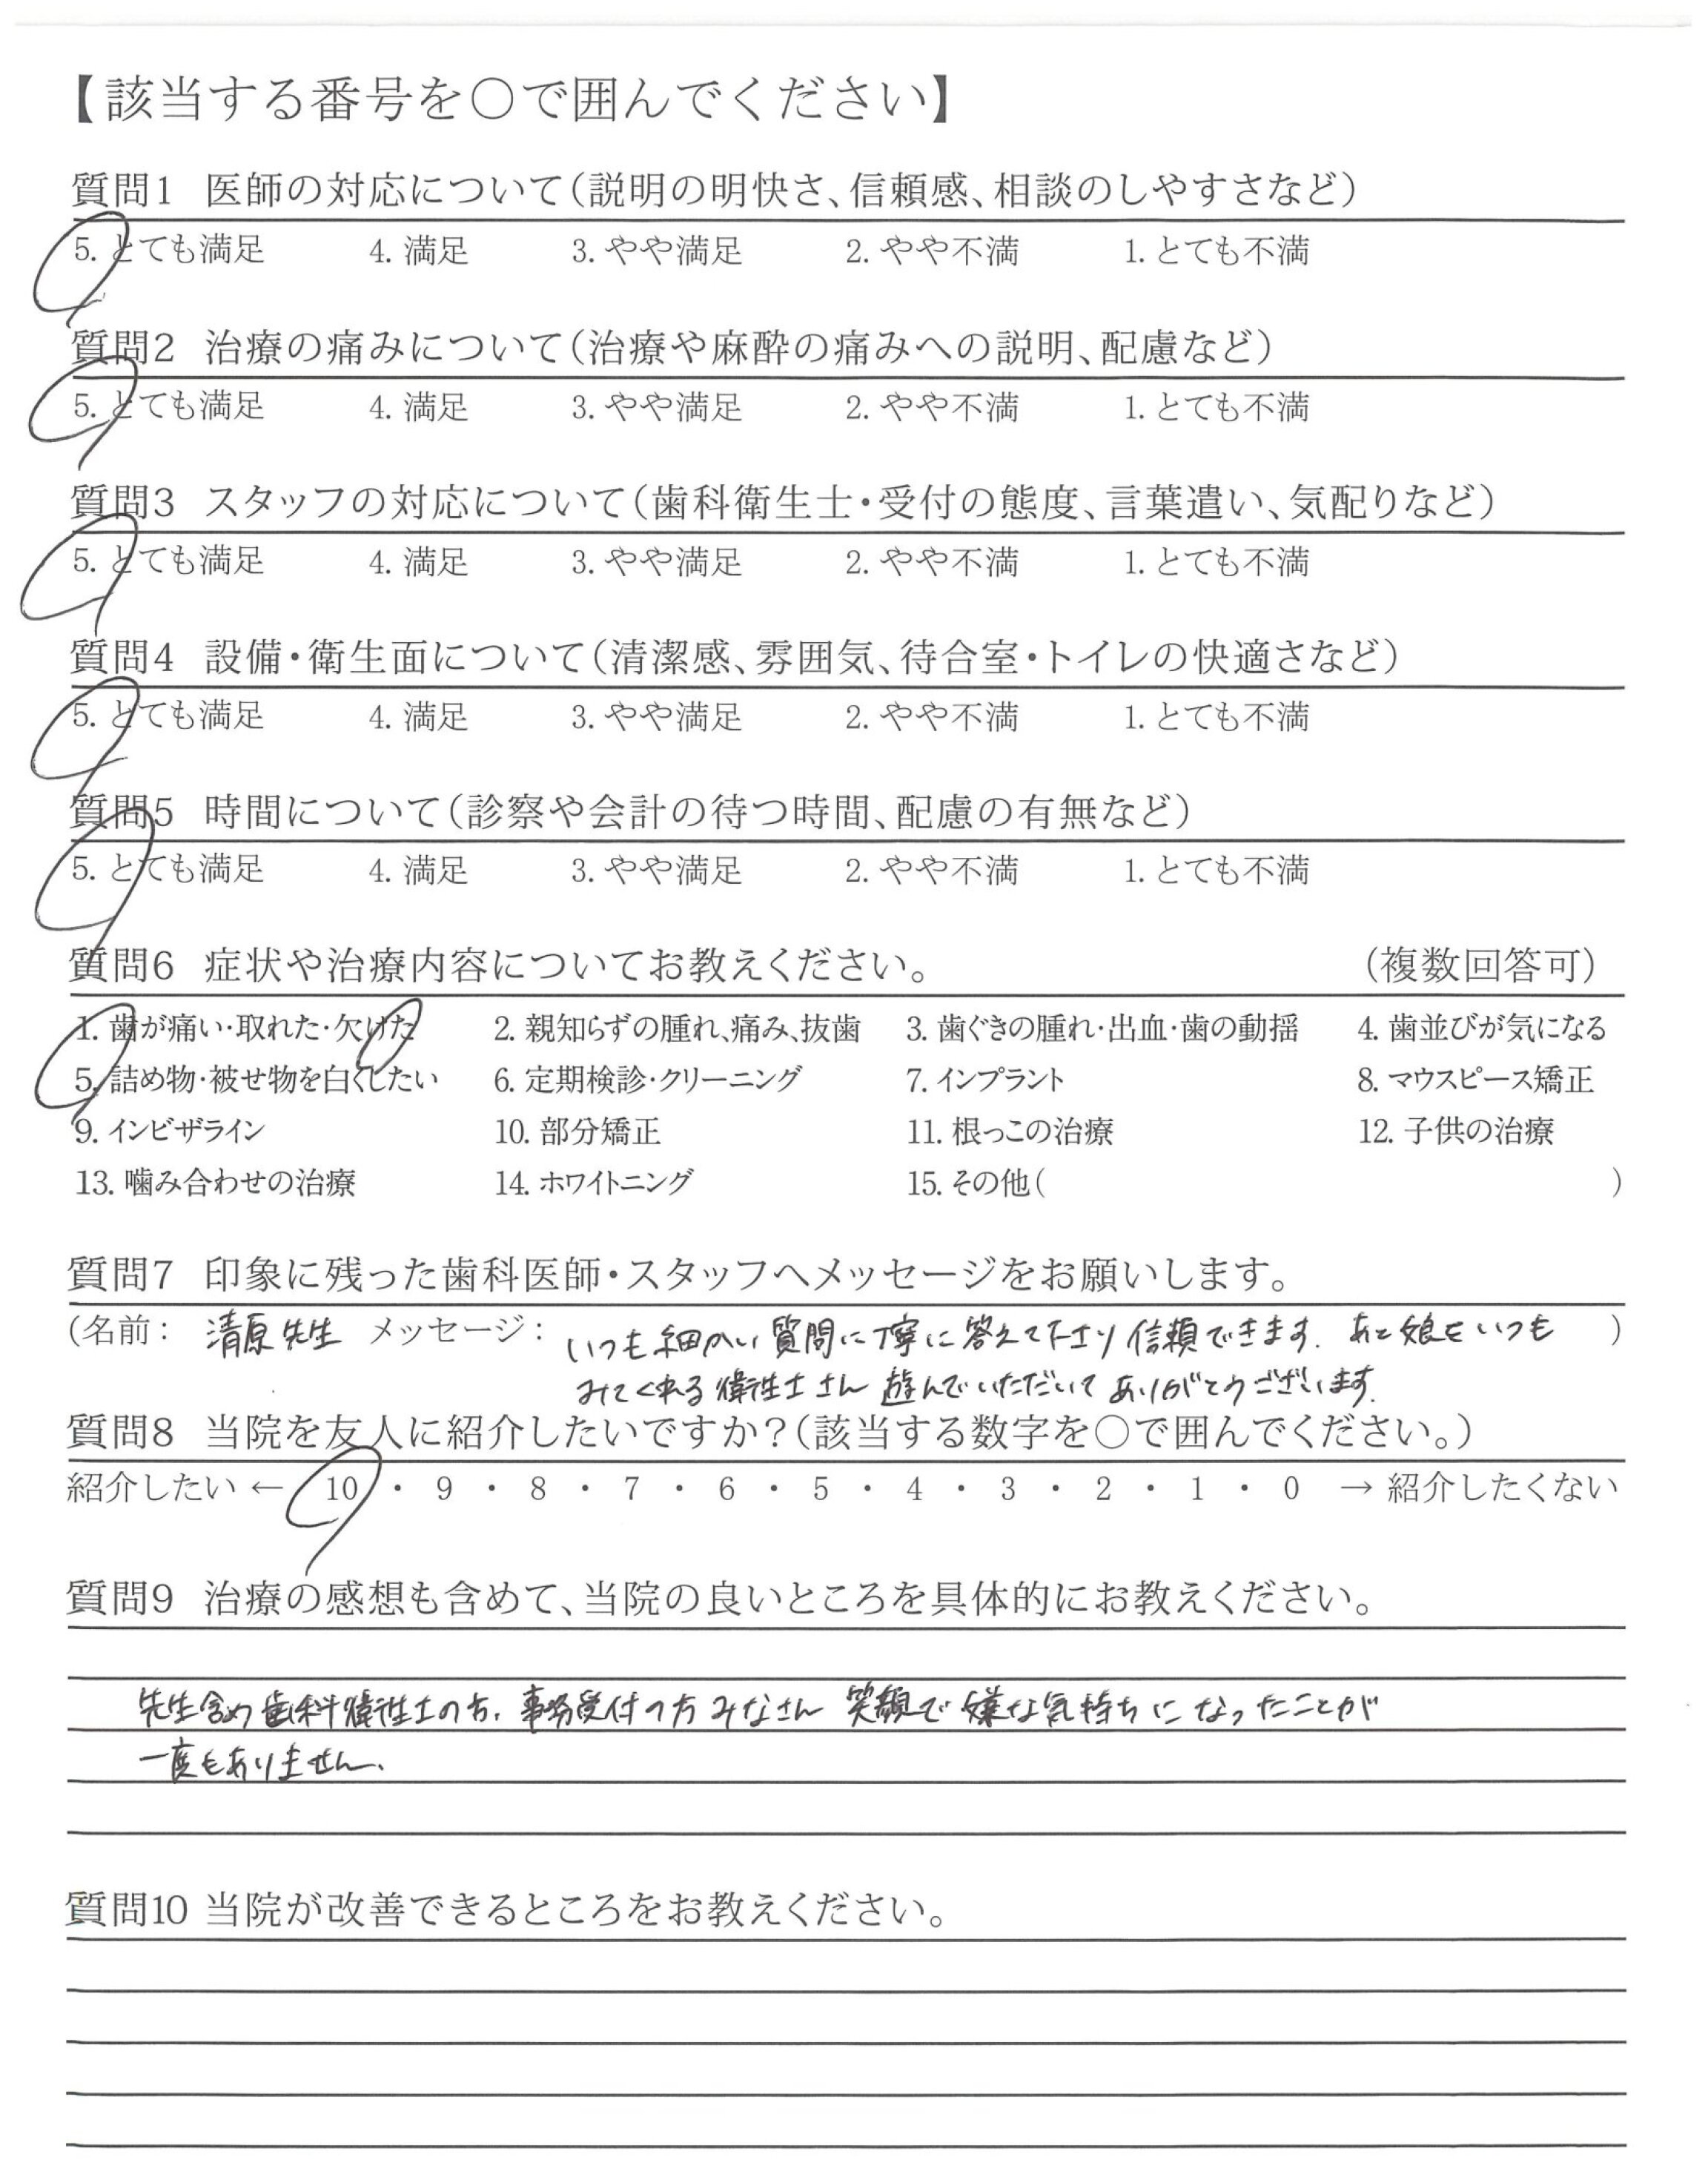 【該当する番号を○で囲んでください】
質問1 医師の対応について(説明の明快さ、信頼感、相談のしやすさなど)
5. とても満足 4. 満足 3. やや満足 2. やや不満 1. とても不満
質問2 治療の痛みについて(治療や麻酔の痛みへの説明、配慮など)
5. とても満足 4. 満足 3. やや満足 2. やや不満 1. とても不満
質問3 スタッフの対応について(歯科衛生士・受付の態度、言葉遣い、気配りなど)
5. とても満足 4. 満足 3. やや満足 2. やや不満 1. とても不満
質問4 設備・衛生面について(清潔感、雰囲気、待合室・トイレの快適さなど)
5. とても満足 4. 満足 3. やや満足 2. やや不満 1. とても不満
質問5 時間について(診察や会計の待つ時間、配慮の有無など)
5. とても満足 4. 満足 3. やや満足 2. やや不満 1. とても不満
質問6 症状や治療内容についてお教えください。 (複数回答可)
1. 歯が痛い・取れた・欠けた 2. 親知らずの腫れ、痛み、抜歯 3. 歯ぐきの腫れ・出血・歯の動揺 4. 歯並びが気になる
5. 詰め物・被せ物を白くしたい 6. 定期検診・クリーニング 7. インプラント 8. マウスピース矯正
9. インビザライン 10. 部分矯正 11. 根っこの治療 12. 子供の治療
13. 噛み合わせの治療 14. ホワイトニング 15. その他( )
質問7 印象に残った歯科医師・スタッフへメッセージをお願いします。
(名前: 清原先生 メッセージ: いつも細かい質問に丁寧に答えて下さり信頼できます. あと娘をいつも )
みてくれる衛生士さん 遊んでいただいてありがとうございます.
質問8 当院を友人に紹介したいですか?(該当する数字を○で囲んでください。)
紹介したい ← 10 ・ 9 ・ 8 ・ 7 ・ 6 ・ 5 ・ 4 ・ 3 ・ 2 ・ 1 ・ 0 → 紹介したくない
質問9 治療の感想も含めて、当院の良いところを具体的にお教えください。
先生含め歯科衛生士の方、事務受付の方みなさん 笑顔で嫌な気持ちになったことが
一度もありません.
質問10 当院が改善できるところをお教えください。